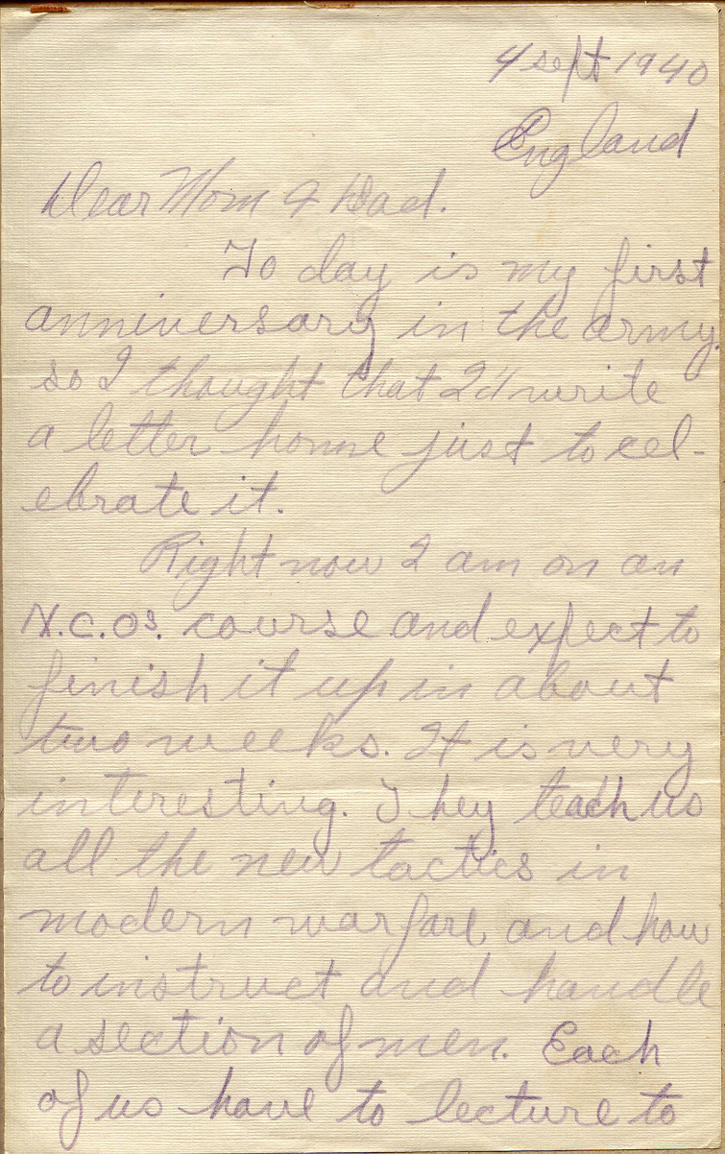 4 Sept 1940
England
Dear Mom & Dad.
To day is my first
anniversary in the army.
so I thought that I'd write
a letter home just to cel-
ebrate it.
Right now I am on an
N.C.Os. course and expect to
finish it up in about
two weeks. It is very
interesting. They teach us
all the new tactics in
modern warfare and how
to instruct and handle
a section of men. Each
of us have to lecture to